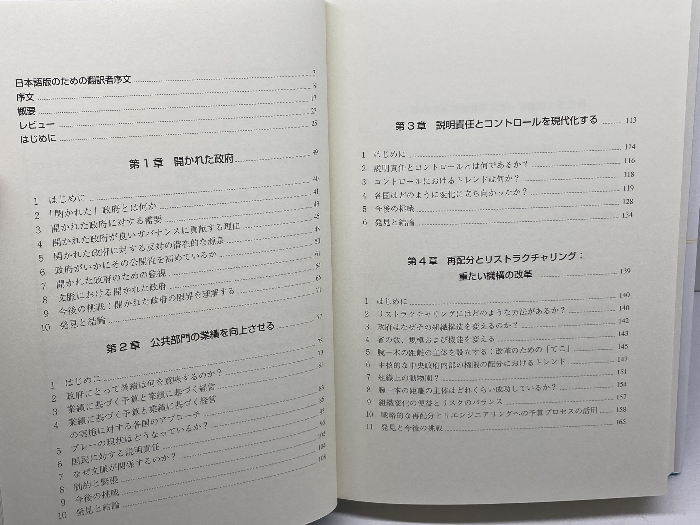 日本語版のための翻訳者序文
序文
概要
レビュー
はじめに
第1章 開かれた政府
1 はじめに
2 「開かれた」政府とは何か
3 開かれた政府に対する需要
4 開かれた政府が良いガバナンスに貢献する理由
5 開かれた政府に対する反対の潜在的な源泉
6 政府がいかにその公開度を高めているか
7 開かれた政府のための監視
8 文脈における開かれた政府
9 今後の挑戦:開かれた政府の限界を理解する
10 発見と結論
第2章 公共部門の業績を向上させる
1 はじめに
2 政府にとって業績は何を意味するのか?
3 業績に基づく予算と業績に基づく経営
4 業績に基づく予算と業績に基づく経営
の実施に対する各国のアプローチ
5 プレーの現状はどうなっているか?
6 国民に対する説明責任
7 なぜ文脈が関係するのか?
8 制約と緊張
9 今後の挑戦
10 発見と結論
第3章 説明責任とコントロールを現代化する 113
1 はじめに 114
2 説明責任とコントロールとは何であるか? 116
3 コントロールにおけるトレンドは何か? 118
4 各国はどのように変化に立ち向かったか? 119
5 今後の挑戦 128
6 発見と結論 134
第4章 再配分とリストラクチャリング:
重たい機構の改革 139
1 はじめに 140
2 リストラクチャリングにはどのような方法があるか? 140
3 政府はなぜその組織構造を変えるのか? 142
4 省の数、規模および機能を変える 143
5 腕一本の距離の主体を設立する:改革のための「てこ」 145
6 主核的な中央政府内部の権限の配分におけるトレンド 147
7 組織上の動物園? 151
8 腕一本の距離の主体はどれくらい成功しているか? 154
9 組織変化の便益とリスクのバランス 157
10 戦略的な再配分とリエンジニアリングへの予算プロセスの活用 158
11 発見と今後の挑戦 165